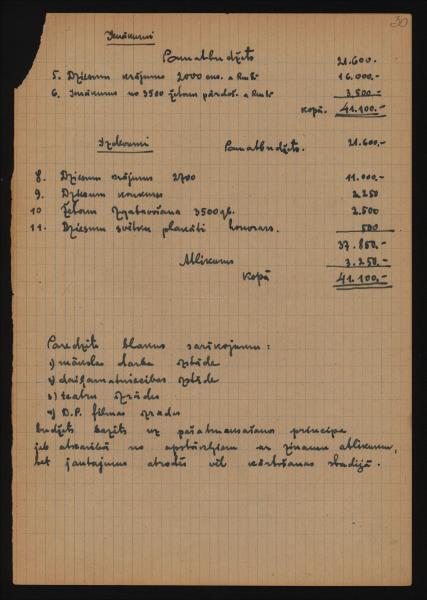 30
Ienākumi
Pamatbudžets 21.600.-
5. Dziesmu krājums 2000 eks. a Rm 8.- 16.000.-
6. Ienākums no 3500 žetonu pārdoš. a Rm 1.- 3.500.-
Kopā. 41.100.-
Izdevumi Pamatbudžets. 21.600.-
8. Dziesmu krājums 2700 11.000.-
9. Dziesmu konkurss 2.250
10 Žetonu izgatavošana 3500 gb. 2.500
11. Dziesmu svētku plakāti honorars. 500
37.850.-
Atlikums 3.250.-
Kopā 41.100.-
Paredzēts blakus sarīkojumu:
1) mākslas darbu izstāde
2) daiļamatniecības izstāde
3) teatru izrādes
4) D.P. filmas izrādes
budžets bazēts uz pašatmaksāšanos principa
jeb atkarībā no apstākļiem ar zinamu atlikumu,
bet jautajums atrodās vēl kārtošanas stadijā.